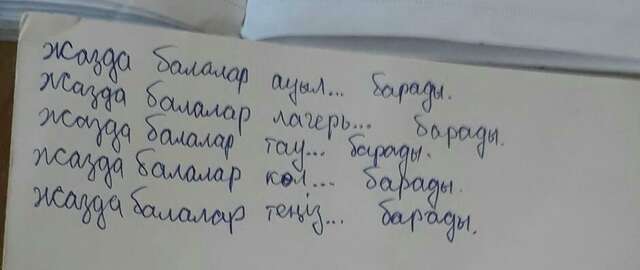 Жазда балалар ауыл... барады.
Жазда балалар лагерь... барады.
Жазда балалар тау... барады.
Жазда балалар көл... барады.
Жазда балалар теңіз... барады.